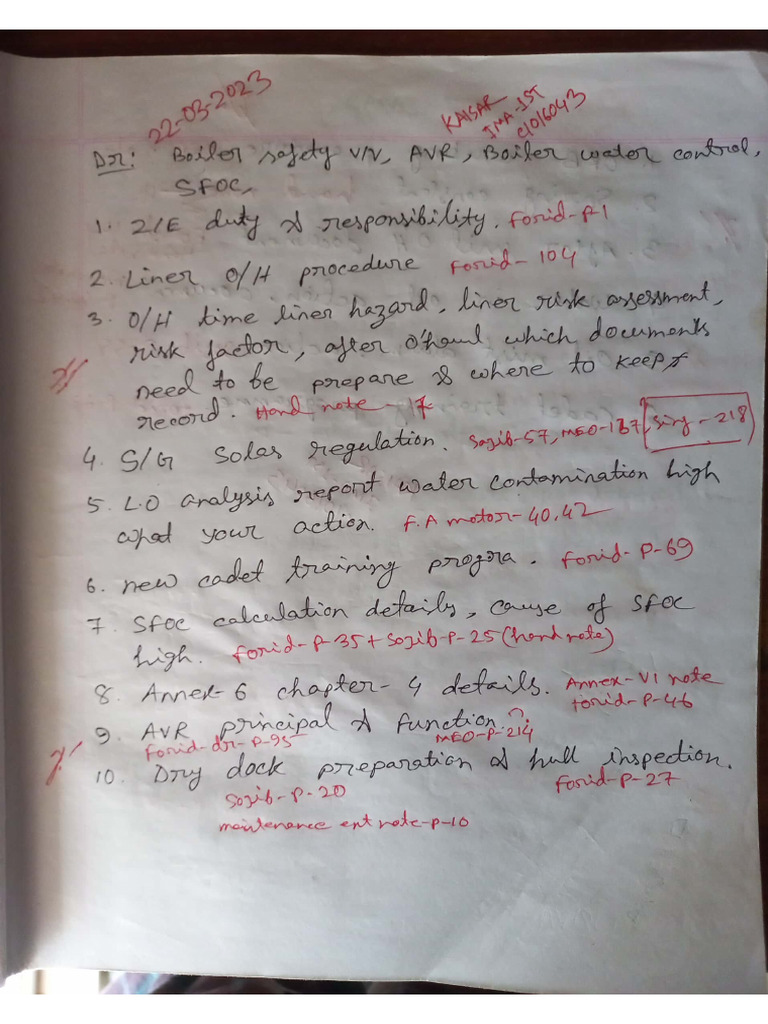 22-03-2023
KAISAR
IMA-1ST
C/016043
Dr: Boiler safety v/v, AVR, Boiler water control,
SFOC,
1. 2/E duty & responsibility. Forid-P-1
2. Liner O/H procedure Forid-104
3. O/H time liner hazard, liner risk assessment,
risk factor, after o'haul which documents
need to be prepare & where to keep
record. Hand note-17
4. S/G Solas regulation. Sozib-57, MEO-167, Siry-218
5. L.O analysis report water contamination high
what your action. F.A motor-40,42
6. new cadet training progra. Forid-P-69
7. SFOC calculation details, cause of SFOC
high. Forid-P-35+Sozib-P-25 (hand note)
8. Annex-6 chapter-4 details. Annex-VI note
forid-P-46
9. AVR principal & function. MEO-P-214
Forid-dr-P-95
10. Dry dock preparation & hull inspection.
Sozib-P-20 Forid-P-27
maintenance ent note-P-10